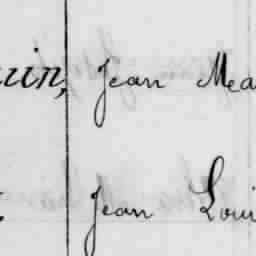 uin, Jean Mea
Jean Loui